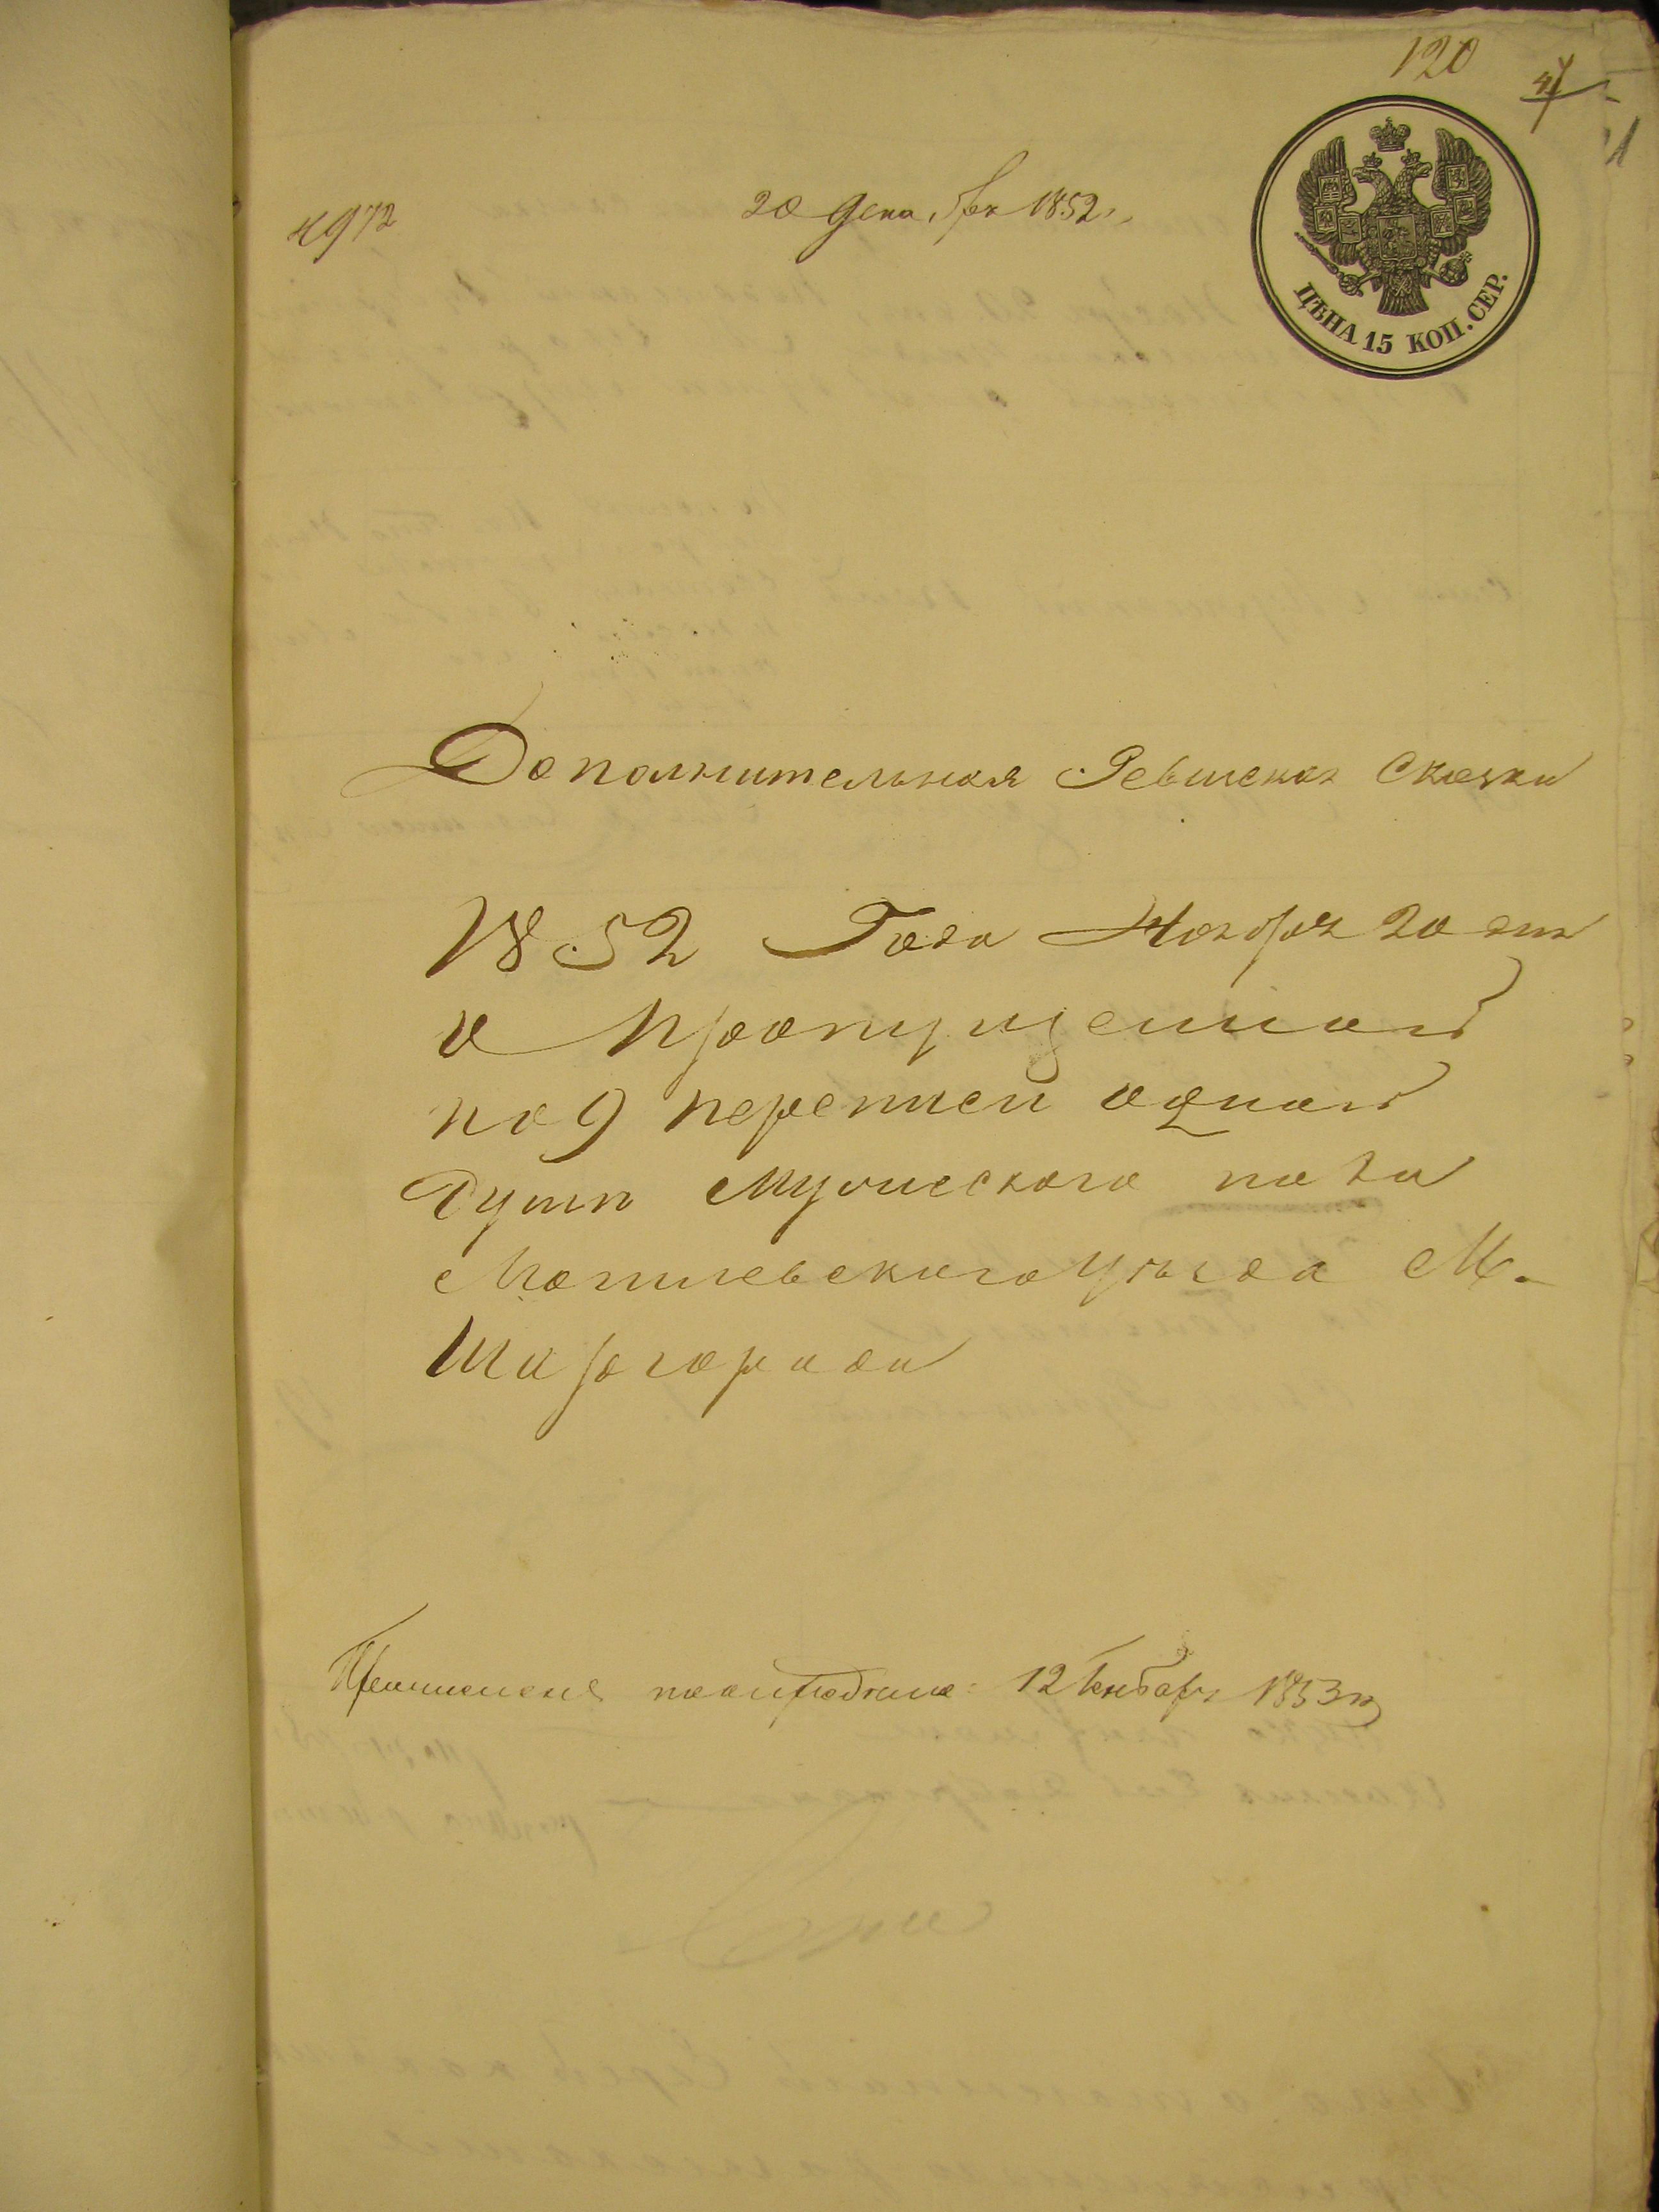 120
47
4972
20 декабря 1852.
ЦѢНА 15 КОП. СЕР.
Дополнительная Ревиская Сказка
1852 Года Ноября 20 дня
о пропущенной
по 9 переписи одной
Души мужескаго пола
Могилевскаго уѣзда М.
Шаргорода
12 Генваря 1853 г